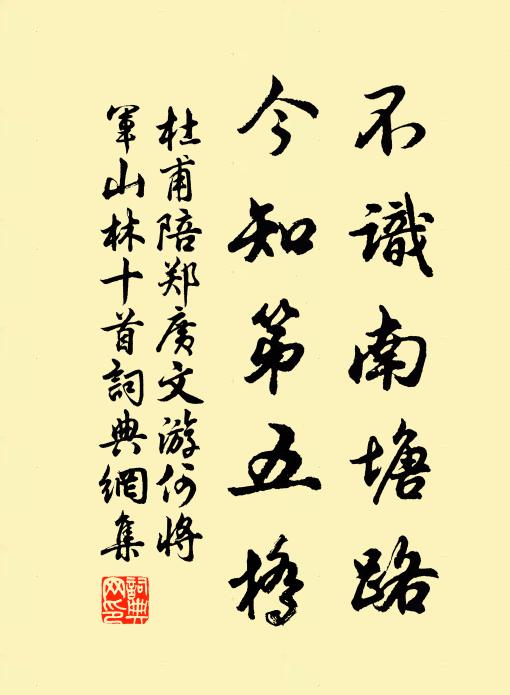 不識南塘路
今知第五橋
杜甫陪郑廣文游何將
軍山林十首詞典網集